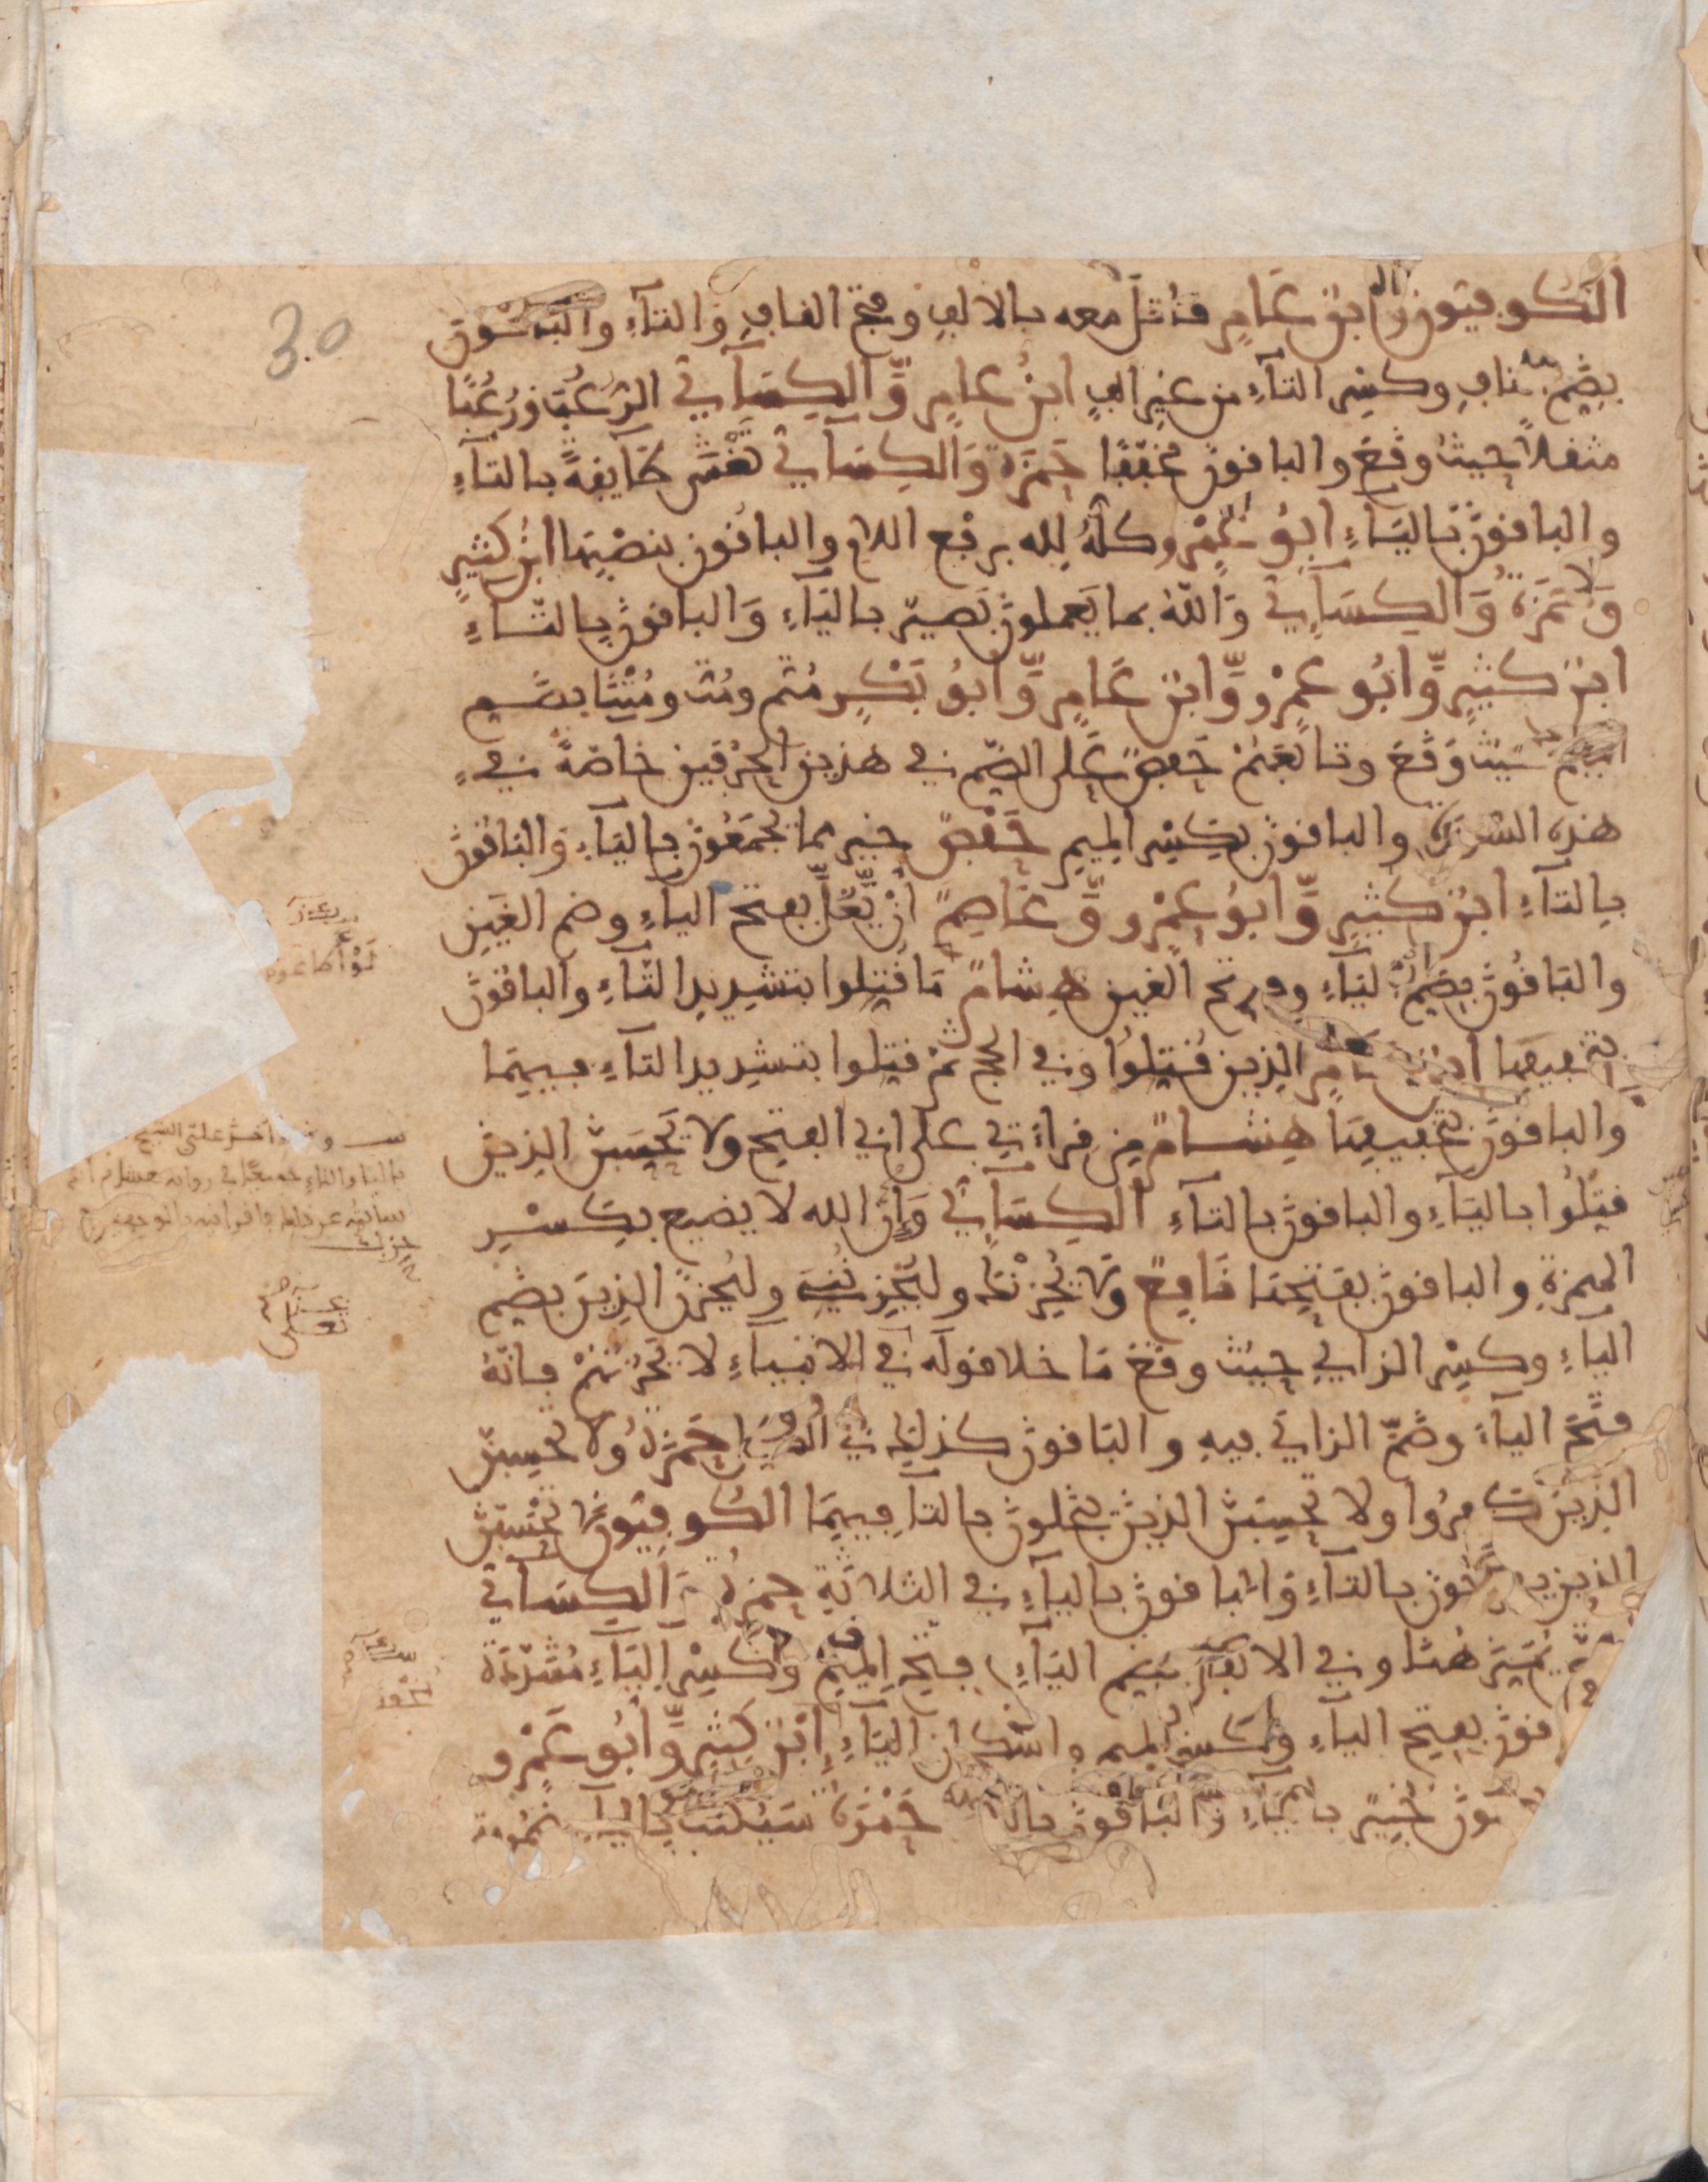 30
الكوفيون وابن عامر قاتل معه بالالف وفتح القاف والتاء والباقون
بضم القاف وكسر التاء من غير الف ابن عامر والكسآئي الرعب ورعبا
مثقلا حيث وقع والباقون مخففا حمزة والكسآئي تغشى طآيفة بالتآء
والباقون باليآء ابو عمرو كله لله برفع اللام والباقون بنصبها ابن كثير
وحمزة والكسآئي والله بما يعملون بصير باليآء والباقون بالتآء
ابن كثير وابو عمرو وابن عامر وابو بكر متم ومت ومتنا بضم
الميم حيث وقع وتابعهم حفص على الضم في هذين الحرفين خاصة في
هذه السورة والباقون بكسر الميم حفص خير مما يجمعون باليآء والباقون
بالتآء ابن كثير وابو عمرو وعاصم ان يغل بفتح اليآء وضم الغين
والباقون بضم اليآء وفتح الغين هشام ما قتلوا بتشديد التآء والباقون
بتخفيفها ابن عامر الذين قتلوا وفي الحج ثم قتلوا بتشديد التآء فيهما
والباقون بتخفيفها هشام من قراءتي على ابي الفتح ولا يحسبن الذين
قتلوا باليآء والباقون بالتآء الكسآئي وان الله لا يضيع بكسر
الهمزة والباقون بفتحها نافع ولا يحزنك وليحزنني وليحزن الذين بضم
اليآء وكسر الزاي حيث وقع ما خلا قوله في الانبيآء لا يحزنهم فانه
فتح اليآء وضم الزاي فيه والباقون كذلك في الجميع حمزة ولا تحسبن
الذين كفروا ولا تحسبن الذين يبخلون بالتا فيهما الكوفيون لا تحسبن
الذين يفرحون بالتآء والباقون باليآء في الثلاثة حمزة والكسآئي
يميز هنا وفي الانفال بضم اليآء وفتح الميم وكسر اليآء مشددة
والباقون بفتح اليآء وكسر الميم واسكان اليآء ابن كثير وابو عمرو
يعملون خبير باليآء والباقون بالتآء حمزة سيكتب باليآء